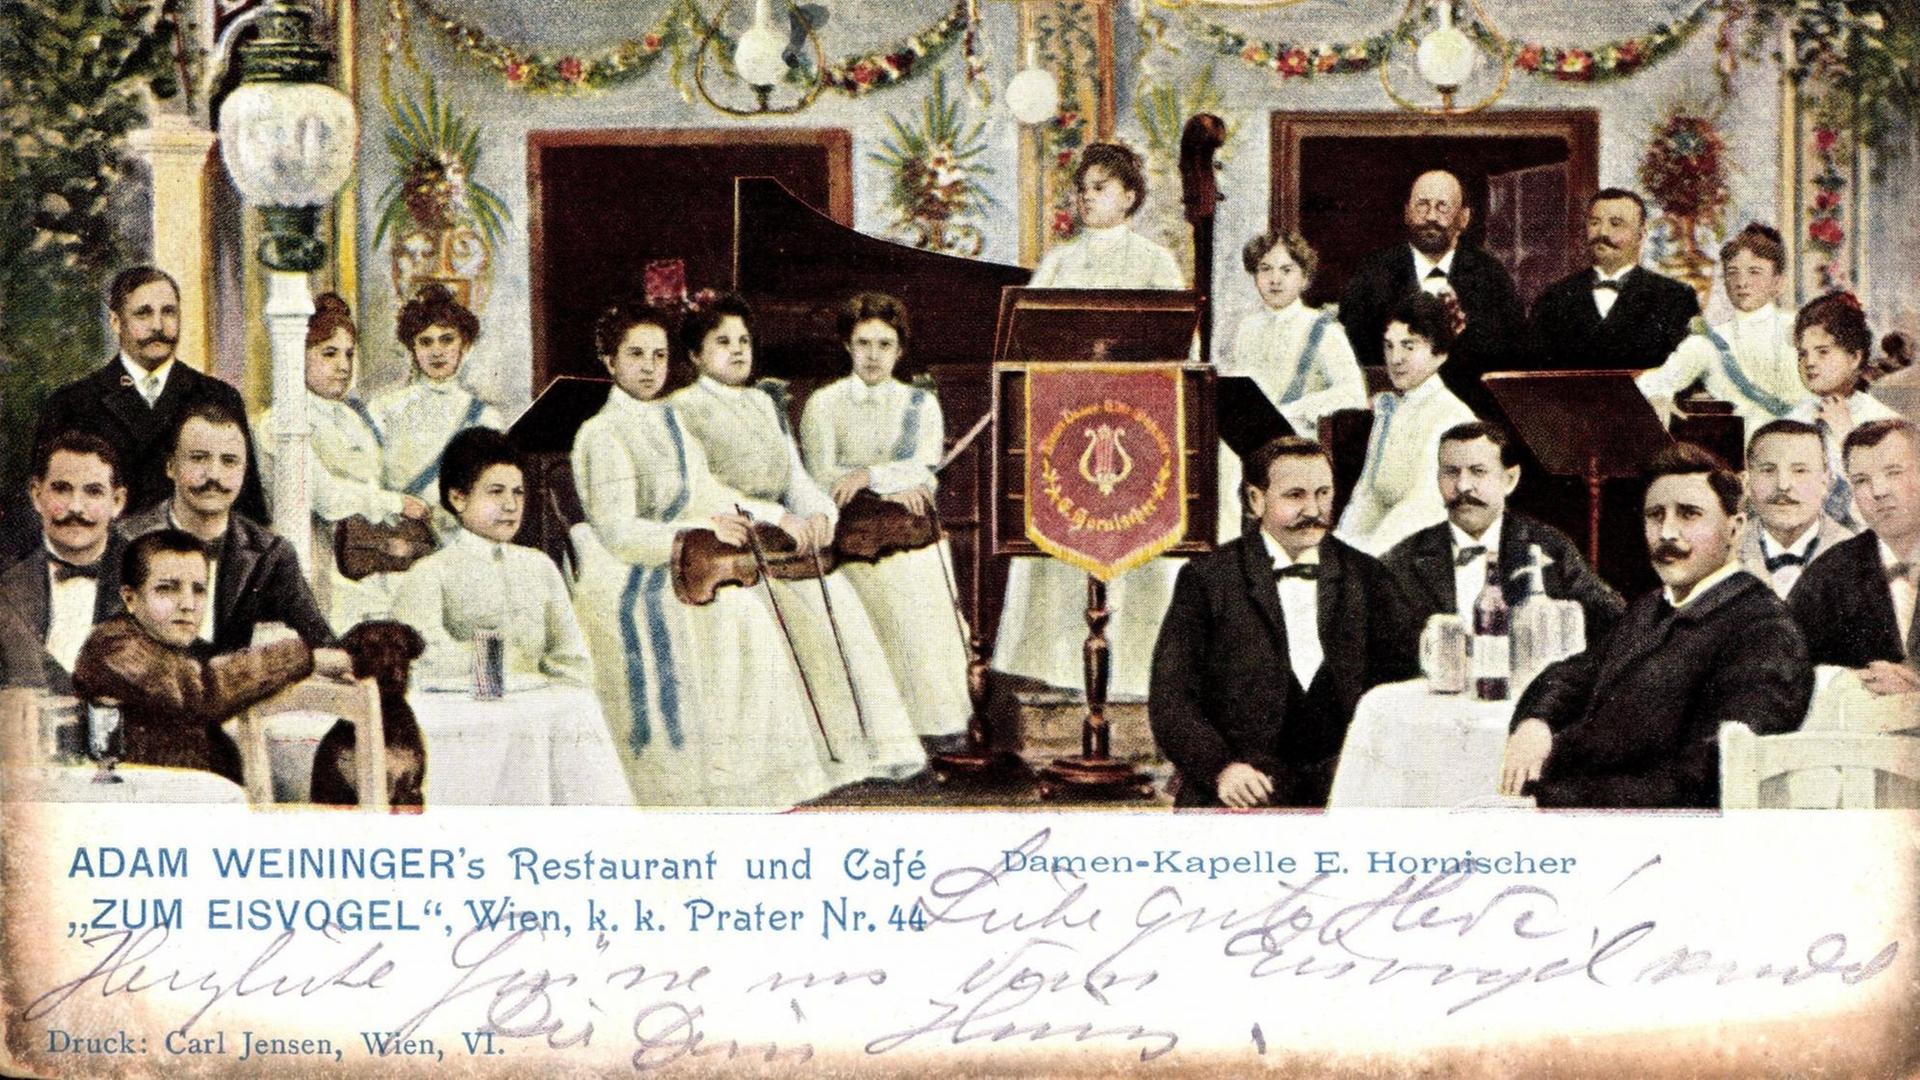 ADAM WEININGER's Restaurant und Café
„ZUM EISVOGEL“, Wien, k. k. Prater Nr. 44
Damen-Kapelle E. Hornischer
E. Hornischer
Liebe gute
Herzliche Grüsse aus vom Eisvogel sendet
Dir Dein Hans
Druck: Carl Jensen, Wien, VI.